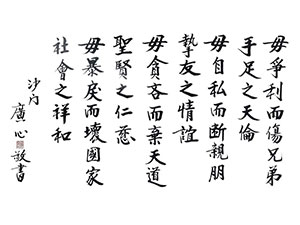 毋爭利而傷兄弟
手足之天倫
毋自私而斷親朋
摯友之情誼
毋貪吝而棄天道
聖賢之仁慈
毋暴戾而壞國家
社會之祥和
沙門
廣心敬書